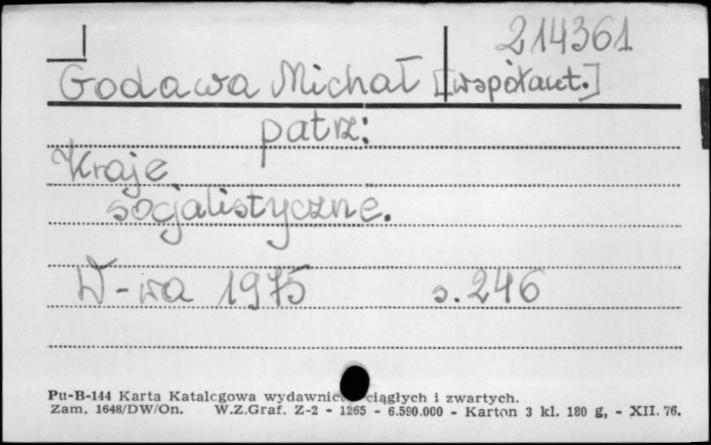 214361
Godawa Michał [współaut.]
patrz:
Kraje
socjalistyczne.
W-wa 1975 s. 246
Pu-B-144 Karta Katalogowa wydawnictw ciągłych i zwartych.
Zam. 1648/DW/On. W.Z.Graf. Z-2 - 1265 - 6.590.000 - Karton 3 kl. 180 g, - XII. 76.